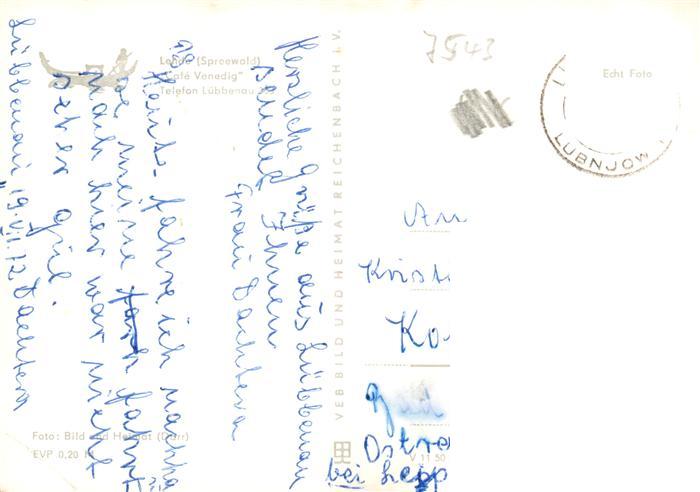 Lehde (Spreewald)
"Café Venedig"
Telefon Lübbenau
Herzliche Grüße aus Lübbenau
sendet Ihnen
Frau Dachtera
Heute fahre ich nach
meine fahrt
nach hier war nicht
Lübbenau, 19.VI.72 Dachtera
Foto: Bild und Heimat (Darr)
EVP 0,20 M
VEB BILD UND HEIMAT REICHENBACH i. V.
V 11 50
7543
Echt Foto
LUBNJOW
An
Krist
Ko
Ostre
bei Lepp